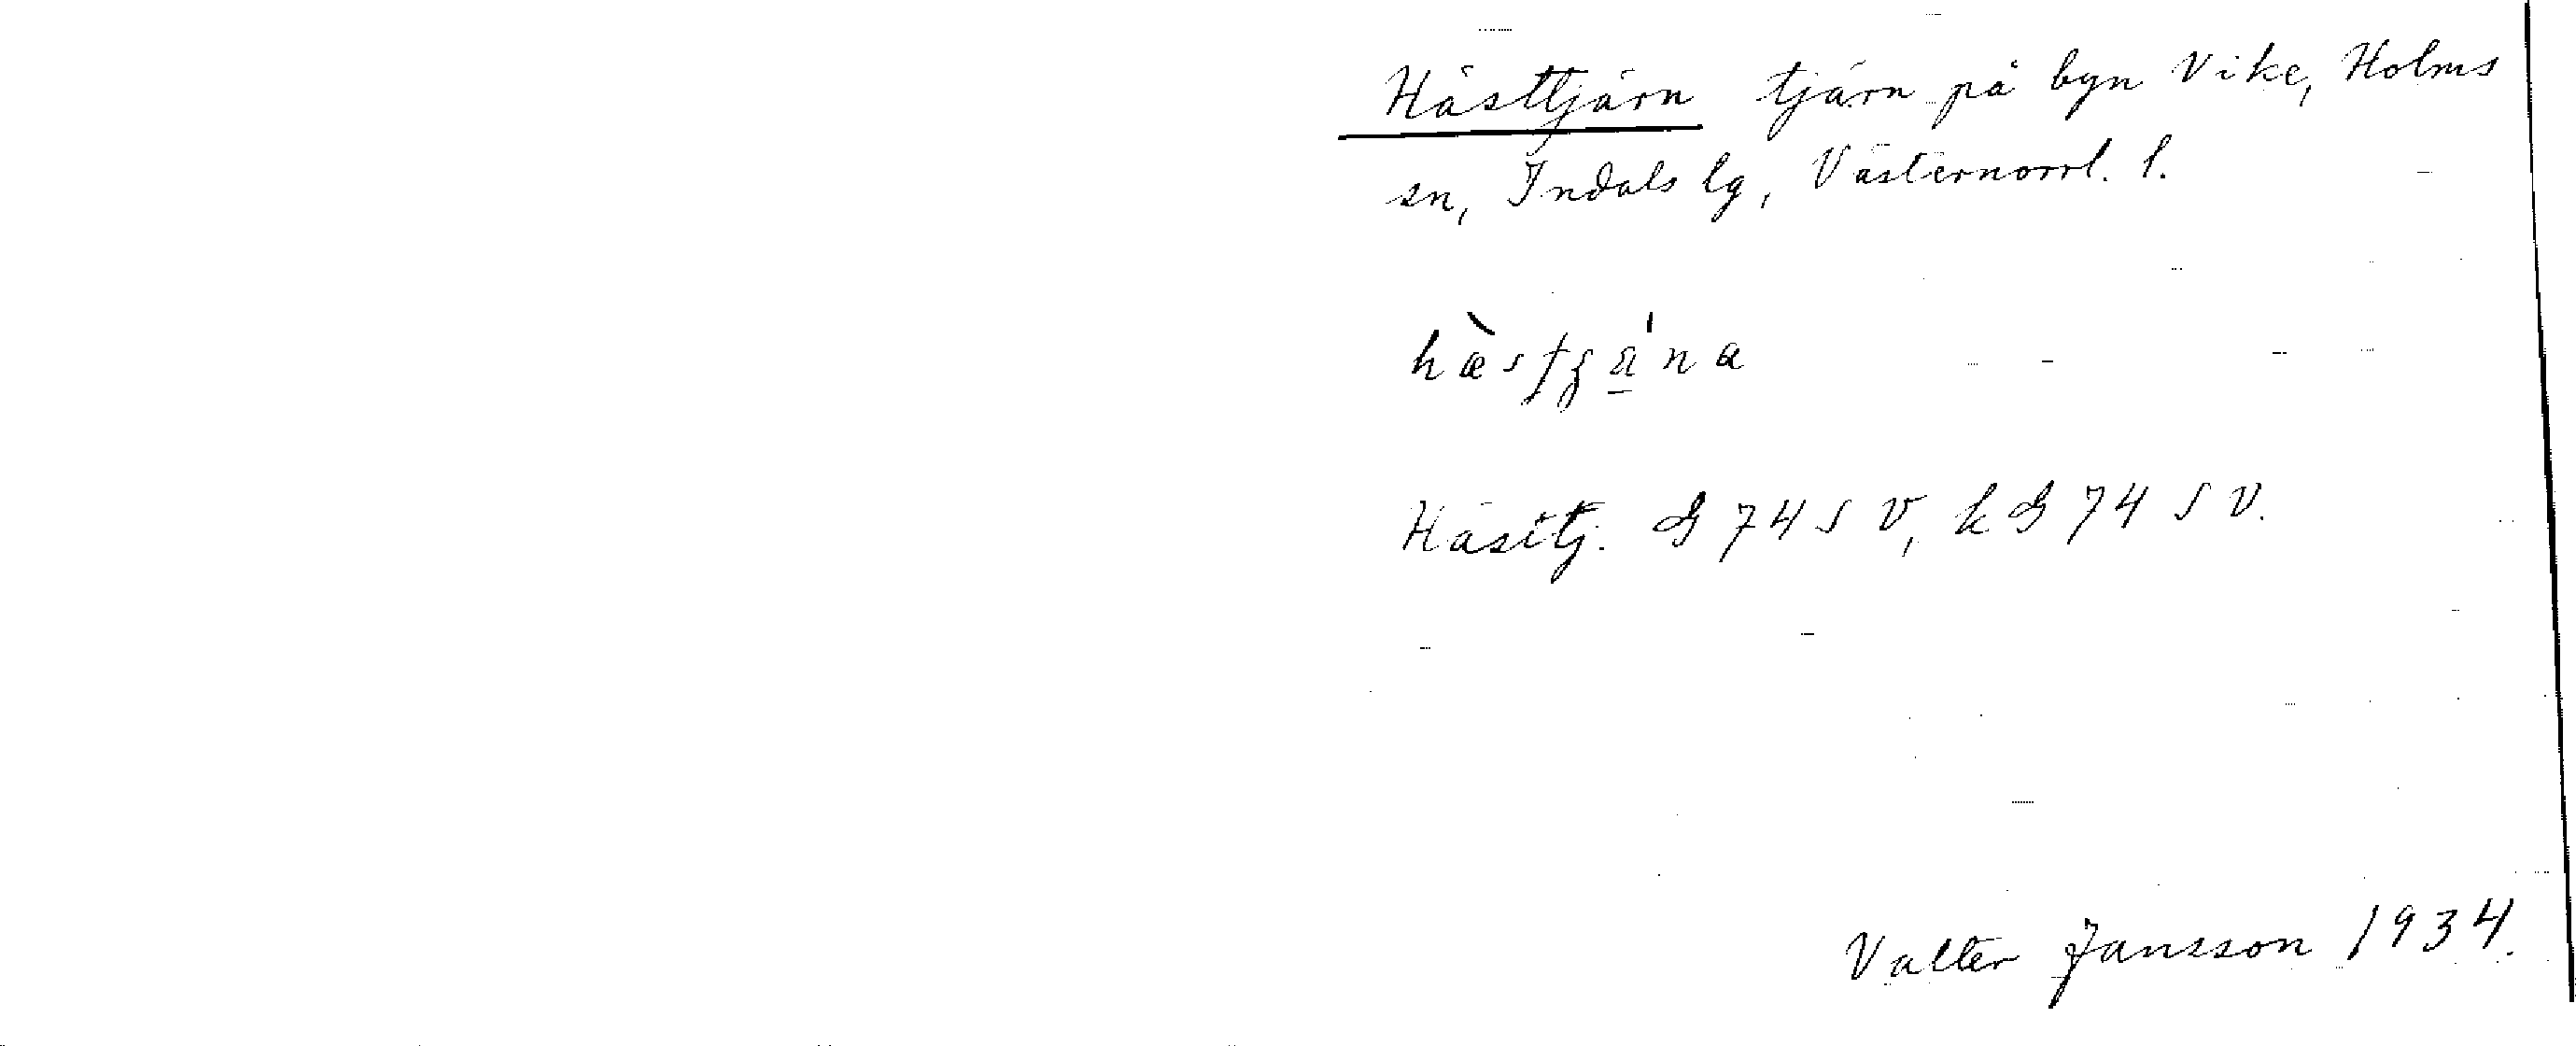 Hästtjärn tjärn på byn Vike, Holms
sn, Indals lg, Västernorrl. l.
Hästtj. G 74 S V, k G 74 S V.
Valter Jansson 1934.